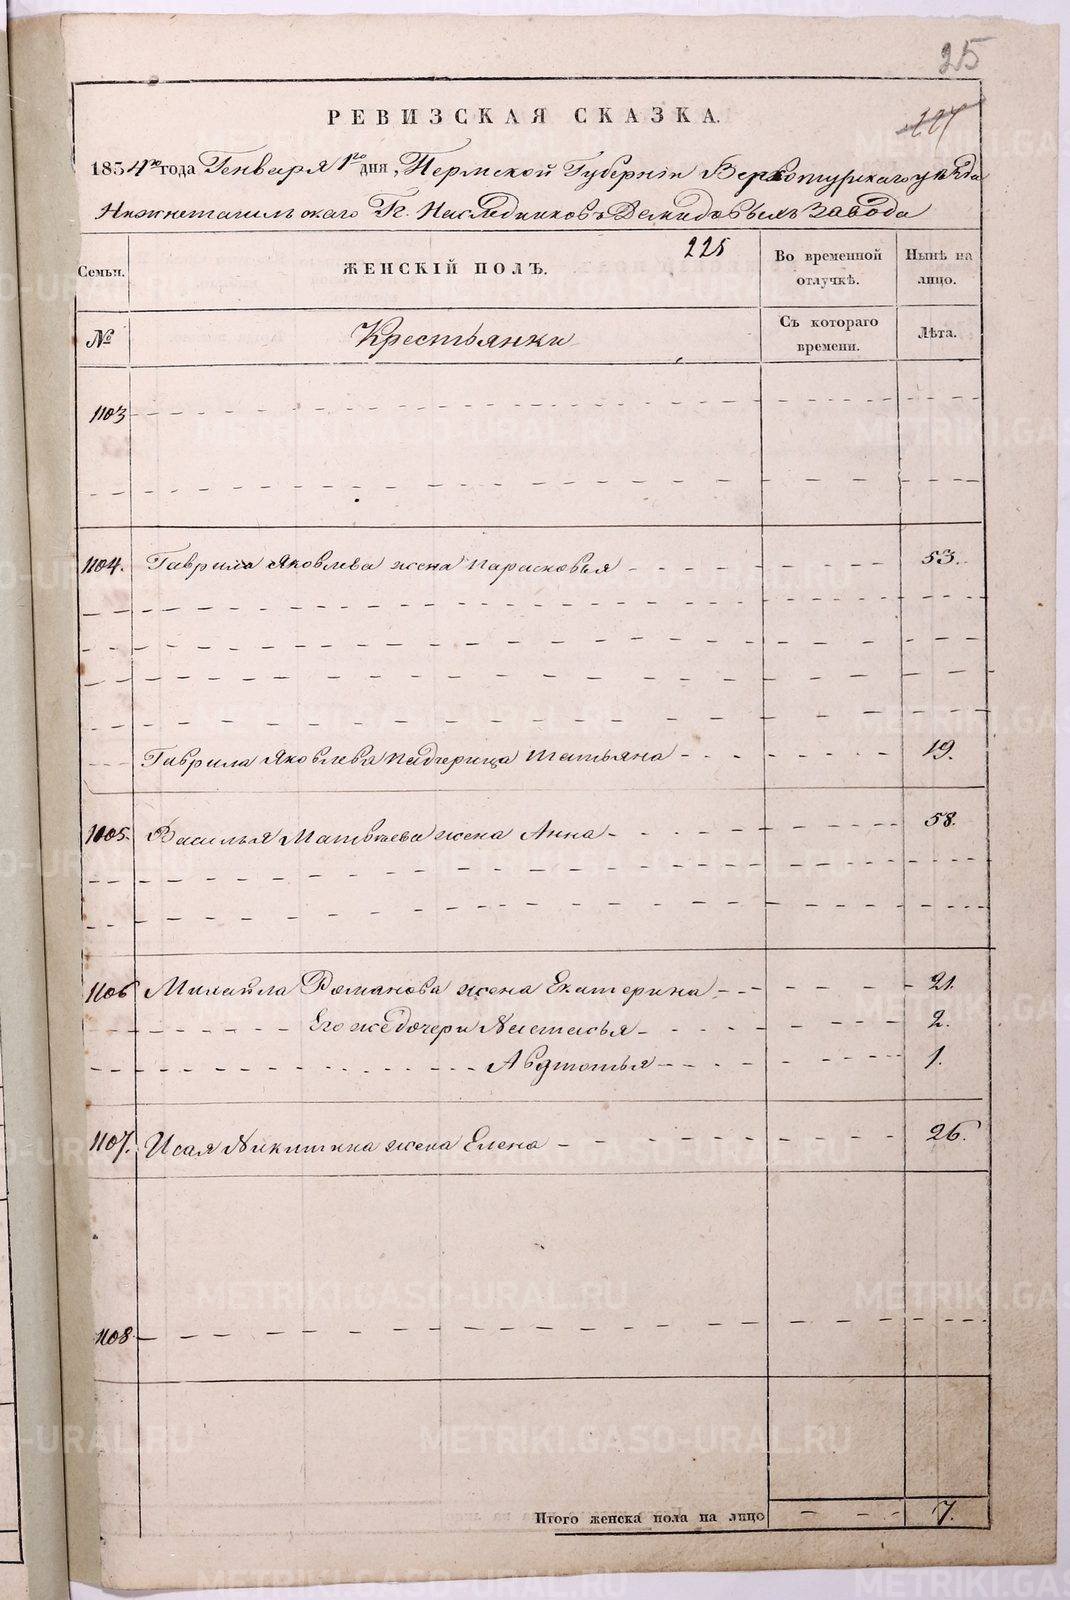 25
РЕВИЗСКАЯ СКАЗКА.
1854го года Генваря 1го дня, Пермской Губерніи Верхотурскаго уѣзда
Нижнетагильскаго Гг. Наслѣдниковъ Демидовыхъ завода
225
Семьи. ЖЕНСКІЙ ПОЛЪ. Во временной отлучкѣ. Нынѣ на лицо.
№ Крестьянки Съ котораго времени. Лѣта.
1103
1104. Гаврила Яковлева жена Парасковья 53.
Гаврила Яковлева падчерица Татьяна 19.
1105. Василья Матвѣева жена Анна 58.
1106 Михайла Романова жена Екатерина 21.
Его же дочери Настасья 2.
Авдотья 1.
1107. Исая Никитина жена Елена 26.
1108
Итого женска пола на лицо 7.
METRIKI.GASO-URAL.RU